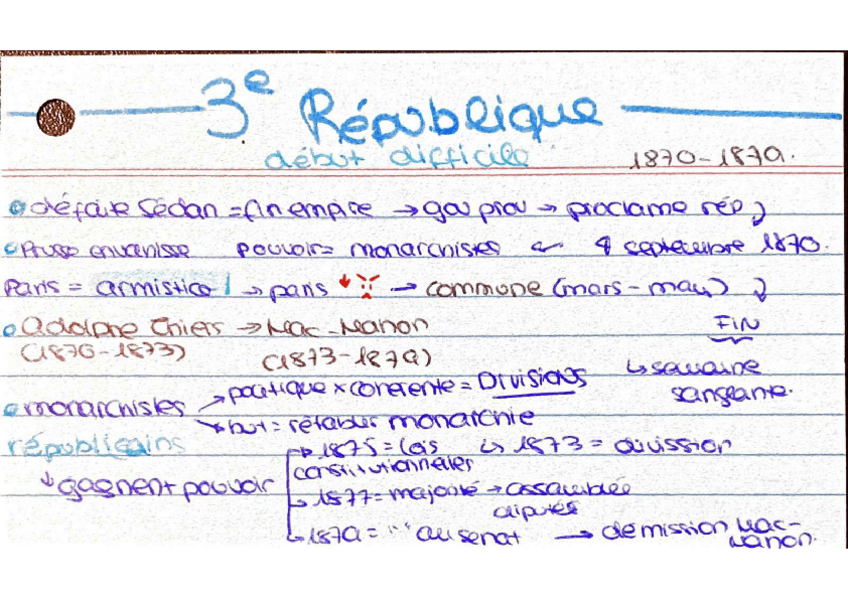 3e République
début difficile 1870-1879.
défaite Sédan = fin empire → gou prov → proclame rép
Prusse envahisse pouvoir = monarchistes ← 4 septembre 1870.
Paris = armistice → paris → commune (mars-mai)
Adolphe Thiers → Mac-Mahon FIN
(1870-1873) (1873-1879) ↳ semaine sanglante.
monarchistes → politique x cohérente = DIVISIONS
→ but = rétablir monarchie
républicains → 1875 = lois constitutionnelles ↳ 1873 = division
↓ gagnent pouvoir
↳ 1877 = majorité → assemblée députés
↳ 1879 = " " au sénat → démission Mac-Mahon.